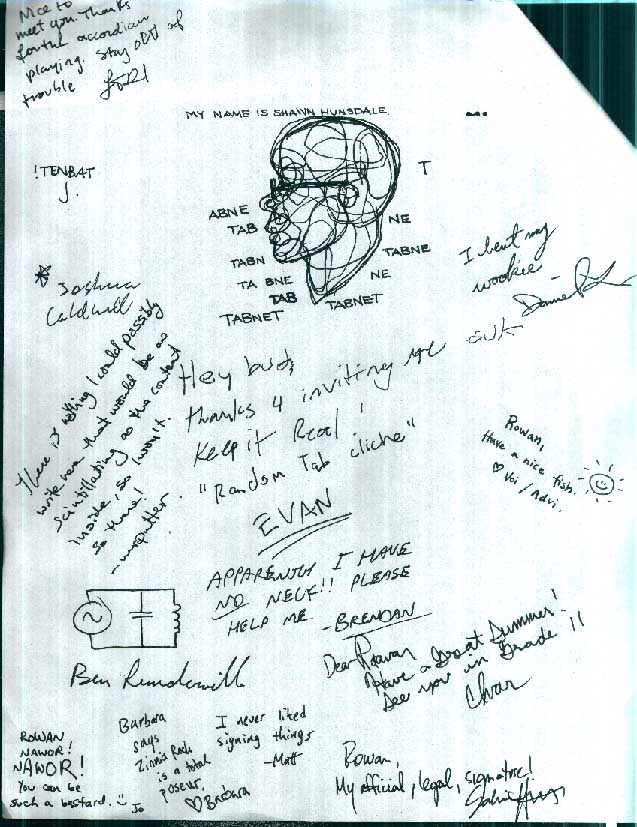 Nice to
meet you. Thanks
for the accordian
playing. Stay out of
trouble
MY NAME IS SHAWN HUNSDALE
!TENBAT
J.
T
ABNE
TAB
TABN
TABNE
TAB
TABNET
NE
TABNE
NE
TABNET
I bent my
wookiee
Joshua
Caldwell
There is nothing I could possibly
write here that would be as
scintillating as the content
inside, so I won't.
So there!
Hey bud,
thanks 4 inviting me out
Keep it Real!
"Random Tab cliche"
EVAN
Rowan,
Have a nice fish.
♡ Voi / Advi.
APPARENTLY I HAVE
NO NECK!! PLEASE
HELP ME. -BRENDAN
Dear Rowan
Have a Great Summer!
See you in Grade 11
Ben
ROWAN
NAWOR!
NAWOR!
You can be
such a bastard.
Jo
Barbara
says
Zinnia Rada
is a total
poseur.
♡ Barbara
I never liked
signing things
-Matt
Rowan,
My official, legal, signature!